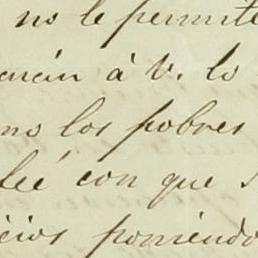 no le permite
án á V. lo
no los pobres
con que s
cios poniendo